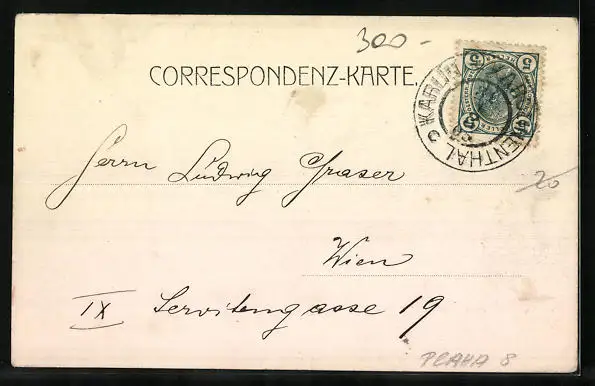 300-
CORRESPONDENZ-KARTE.
5 5
5 5
KAROLINENTHAL
Herrn Ludwig Graser
20
Wien
IX Servitengasse 19
PRAHA 8